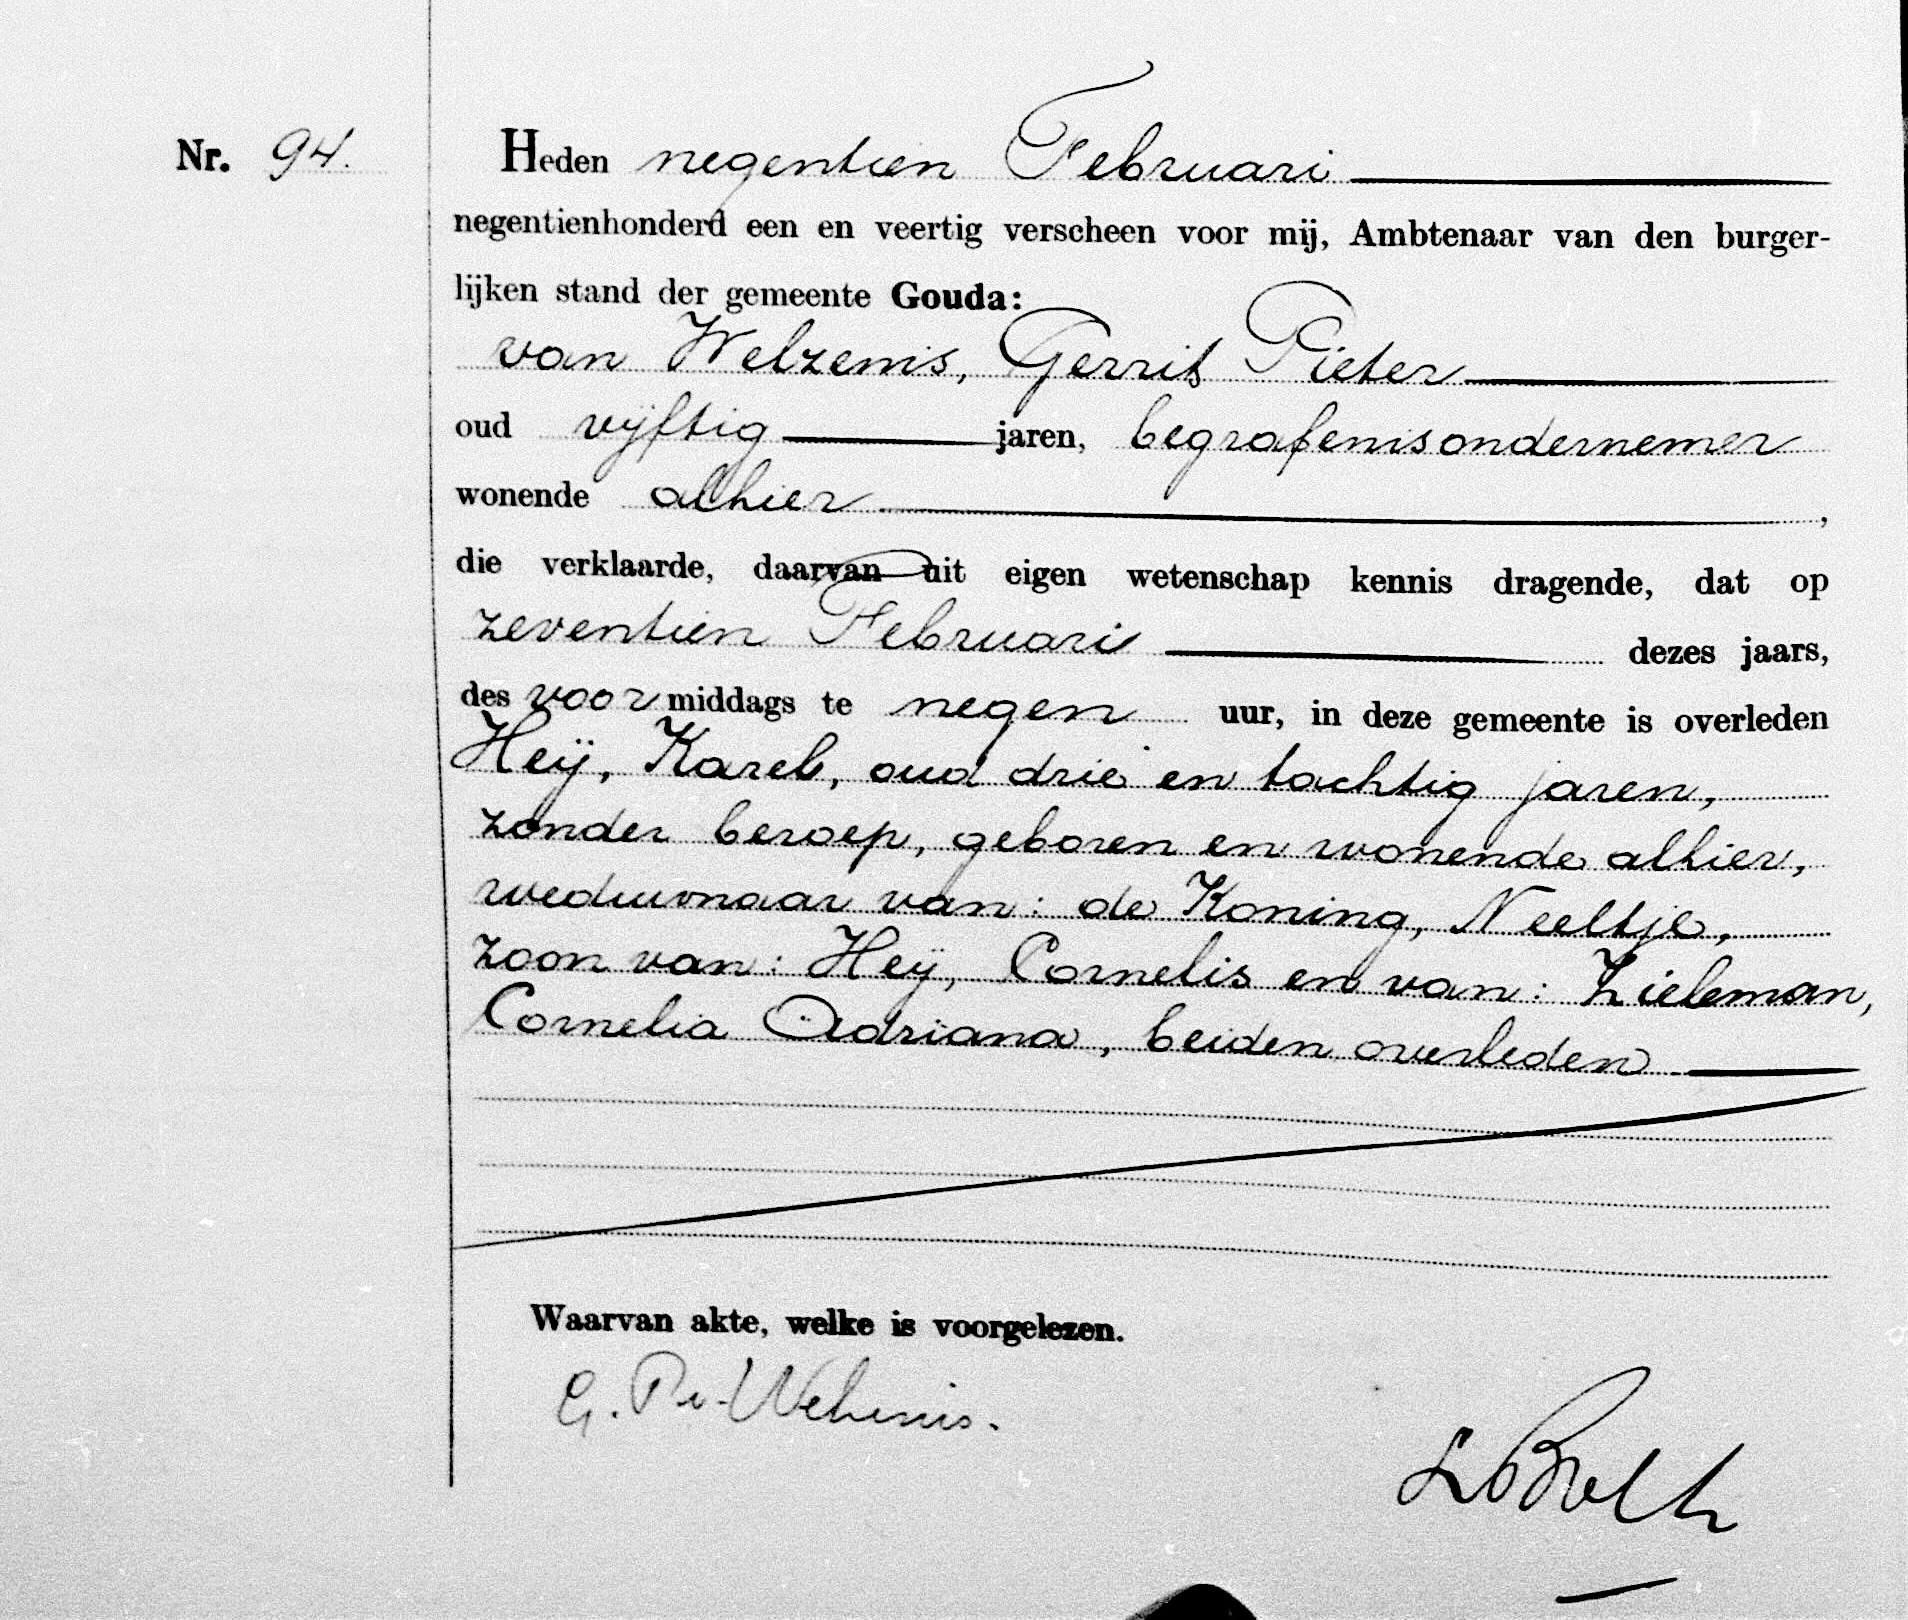 Nr. 94. Heden negentien Februari
negentienhonderd een en veertig verscheen voor mij, Ambtenaar van den burger-
lijken stand der gemeente Gouda:
van Welzenis, Gerrit Pieter
oud vijftig jaren, begrafenisondernemer
wonende alhier ,
die verklaarde, daarvan uit eigen wetenschap kennis dragende, dat op
zeventien Februari dezes jaars,
des voormiddags te negen uur, in deze gemeente is overleden
Heÿ, Karel, oud drie en tachtig jaren,
zonder beroep, geboren en wonende alhier,
weduwnaar van: de Koning, Neeltje,
zoon van: Heÿ, Cornelis en van: Zieleman,
Cornelia Adriana, beiden overleden
Waarvan akte, welke is voorgelezen.
G. P. v. Welzenis.